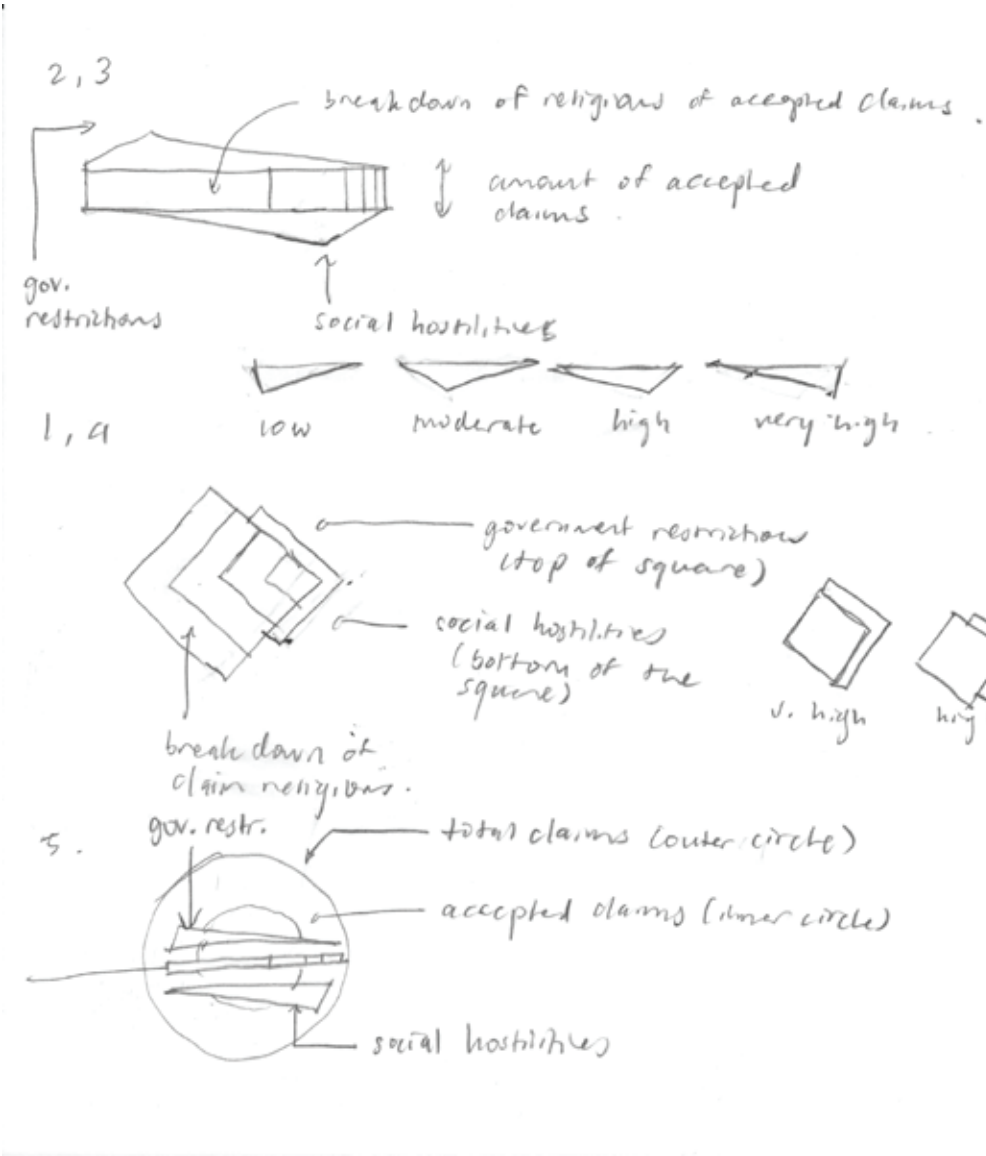 2, 3
breakdown of religions of accepted claims.
amount of accepted
claims.
gov.
restrictions
social hostilities
low moderate high very high
1, 4
government restrictions
(top of square)
social hostilities
(bottom of the
square)
v. high
hig
breakdown of
claim religions.
5.
gov. restr.
total claims (outer circle)
accepted claims (inner circle)
social hostilities